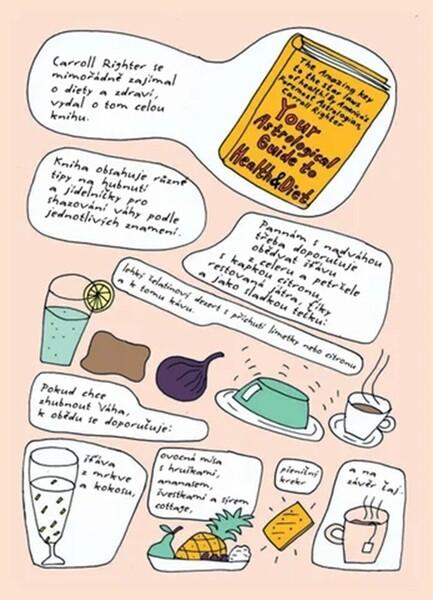 Carroll Righter se
mimořádně zajímal
o diety a zdraví,
vydal o tom celou
knihu.
The Amazing Key
to the Star Laws
of Health! By America's
Foremost Astrologian,
Carroll Righter
Your
Astrological
Guide to
Health & Diet
Kniha obsahuje různé
tipy na hubnutí
a jídelníčky pro
shazování váhy podle
jednotlivých znamení.
Pannám s nadváhou
třeba doporučuje
obědvat šťávu
z celeru a petržele
s kapkou citronu,
restovaná játra, fíky
a jako sladkou tečku:
lehký želatinový dezert s příchutí limetky nebo citronu
a k tomu kávu.
Pokud chce
zhubnout Váha,
k obědu se doporučuje:
šťáva
z mrkve
a kokosu,
ovocná mísa
s hruškami,
ananasem,
švestkami a sýrem
cottage,
pšeničný
krekr
a na
závěr čaj.